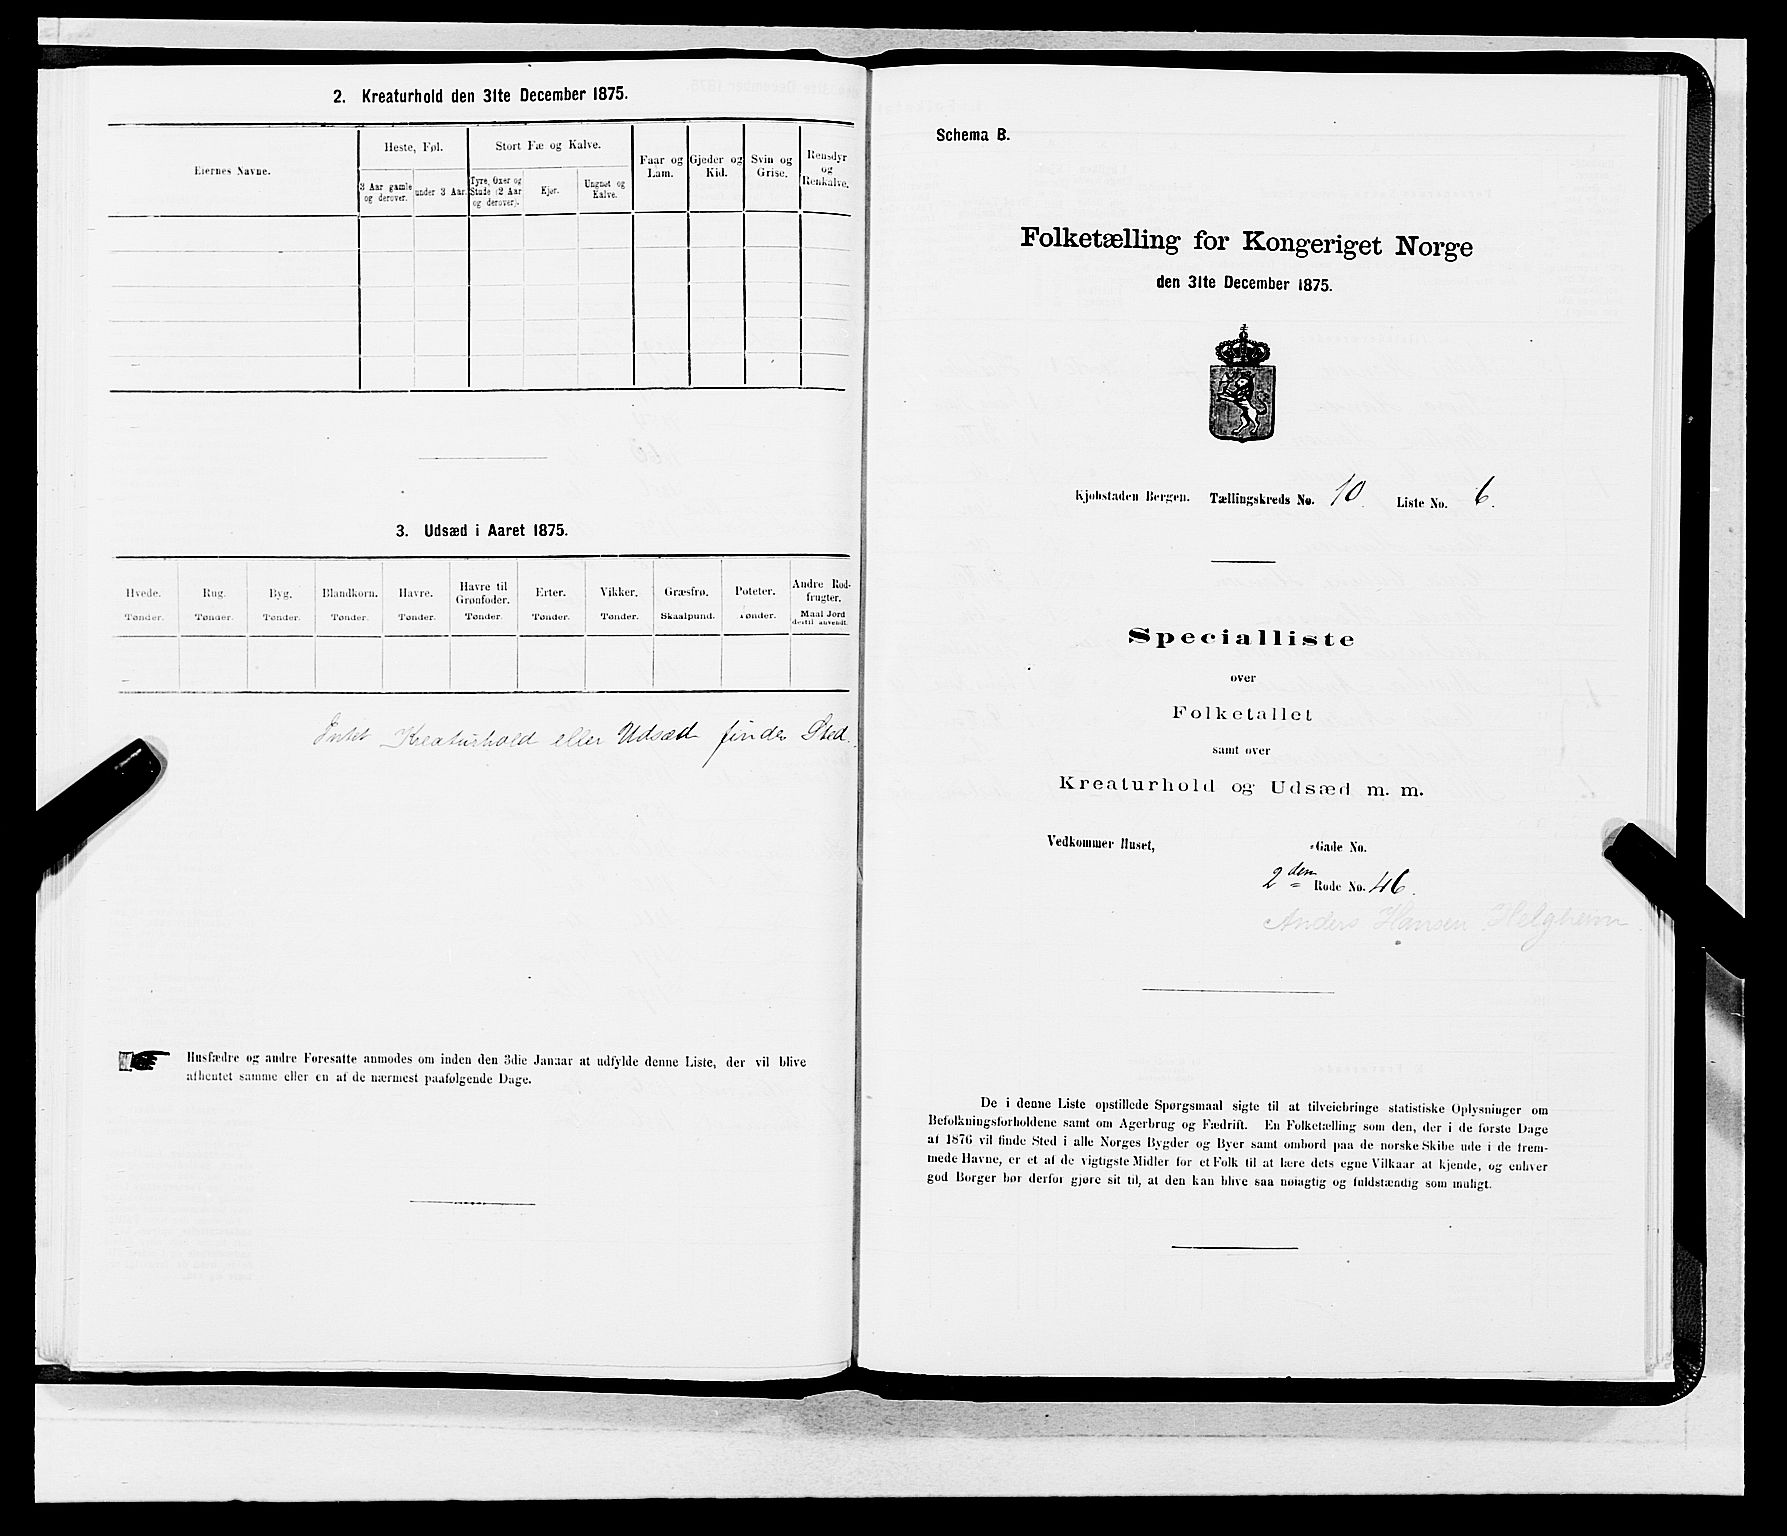 2. Kreaturhold den 31te December 1875.
Eiernes Navne.
Heste, Føl.
Stort Fæ og Kalve.
Faar og
Lam.
Gjeder og
Kid.
Svin og
Grise.
Rensdyr
og
Renkalve.
3 Aar gamle
og derover.
under 3 Aar.
Tyre, Oxer og
Stude (2 Aar
og derover).
Kjør.
Ungnøt og
Kalve.
3. Udsæd i Aaret 1875.
Hvede.
Tønder.
Rug.
Tønder.
Byg.
Tønder.
Blandkorn.
Tønder.
Havre.
Tønder.
Havre til
Grønfoder.
Tønder.
Erter.
Tønder.
Vikker.
Tønder.
Græsfrø.
Skaalpund.
Poteter.
Tønder.
Andre Rod-
frugter.
Maal Jord
dertil anvendt.
Intet Kreaturhold eller Udsæd finder Sted.
Husfædre og andre Foresatte anmodes om inden den 3die Januar at udfylde denne Liste, der vil blive
afhentet samme eller en af de nærmest paafølgende Dage.
Schema B.
Folketælling for Kongeriget Norge
den 31te December 1875.
Kjøbstaden Bergen. Tællingskreds No. 10. Liste No. 6.
Specialliste
over
Folketallet
samt over
Kreaturhold og Udsæd m. m.
Vedkommer Huset, -Gade No.
2den Rode No. 46.
Anders Hansen Helgheim.
De i denne Liste opstillede Spørgsmaal sigte til at tilveiebringe statistiske Oplysninger om
Befolkningsforholdene samt om Agerbrug og Fædrift. En Folketælling som den, der i de første Dage
af 1876 vil finde Sted i alle Norges Bygder og Byer samt ombord paa de norske Skibe ude i de frem-
mede Havne, er et af de vigtigste Midler for et Folk til at lære dets egne Vilkaar at kjende, og enhver
god Borger bør derfor gjøre sit til, at den kan blive saa nøiagtig og fuldstændig som muligt.